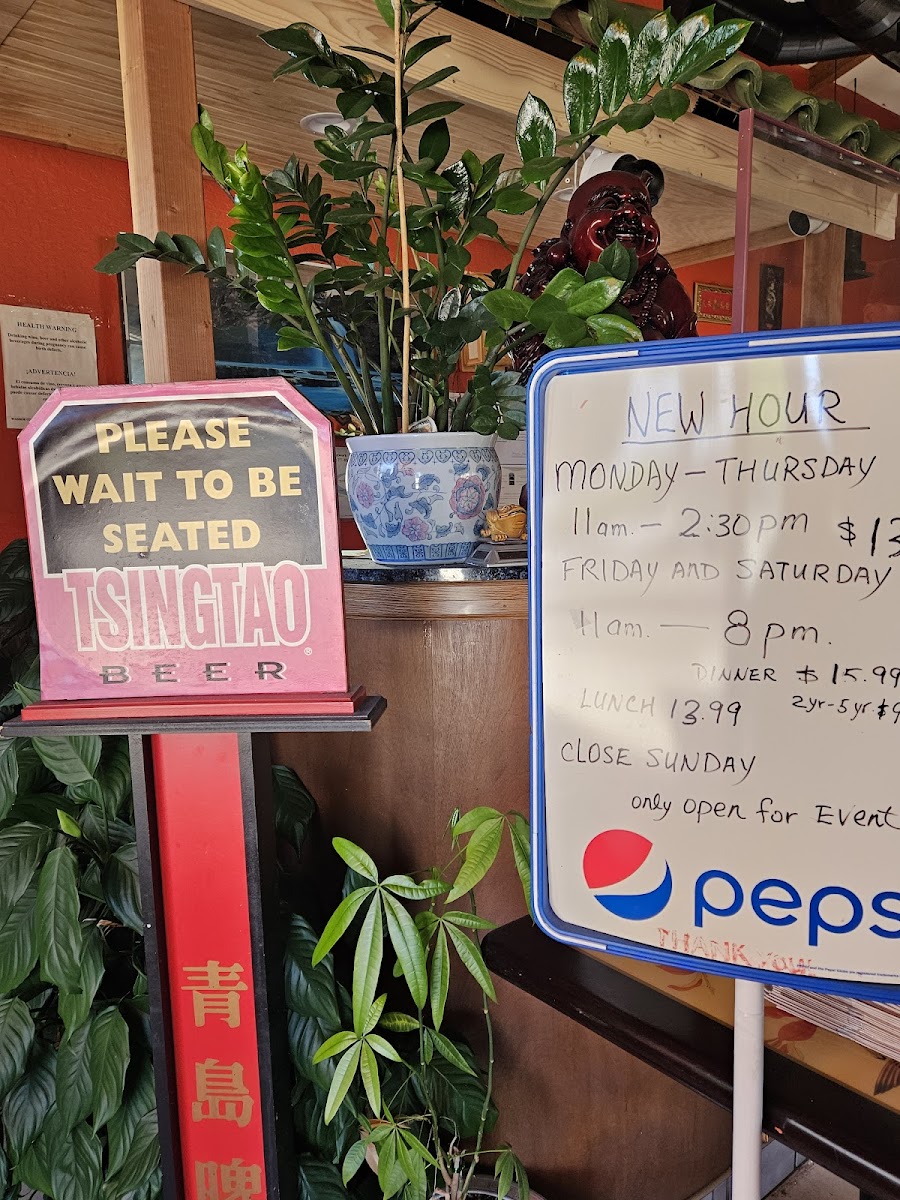 HEALTH WARNING
Drinking wine, beer and other alcoholic
beverages during pregnancy can cause
birth defects.
¡ADVERTENCIA!
PLEASE
WAIT TO BE
SEATED
TSINGTAO
®
BEER
青
島
啤
NEW HOUR
MONDAY - THURSDAY
11am. - 2:30pm $13
FRIDAY AND SATURDAY
11am. — 8pm.
DINNER $15.99
LUNCH 13.99 2yr-5yr. $9
CLOSE SUNDAY
only open for Event
peps
THANK YOU